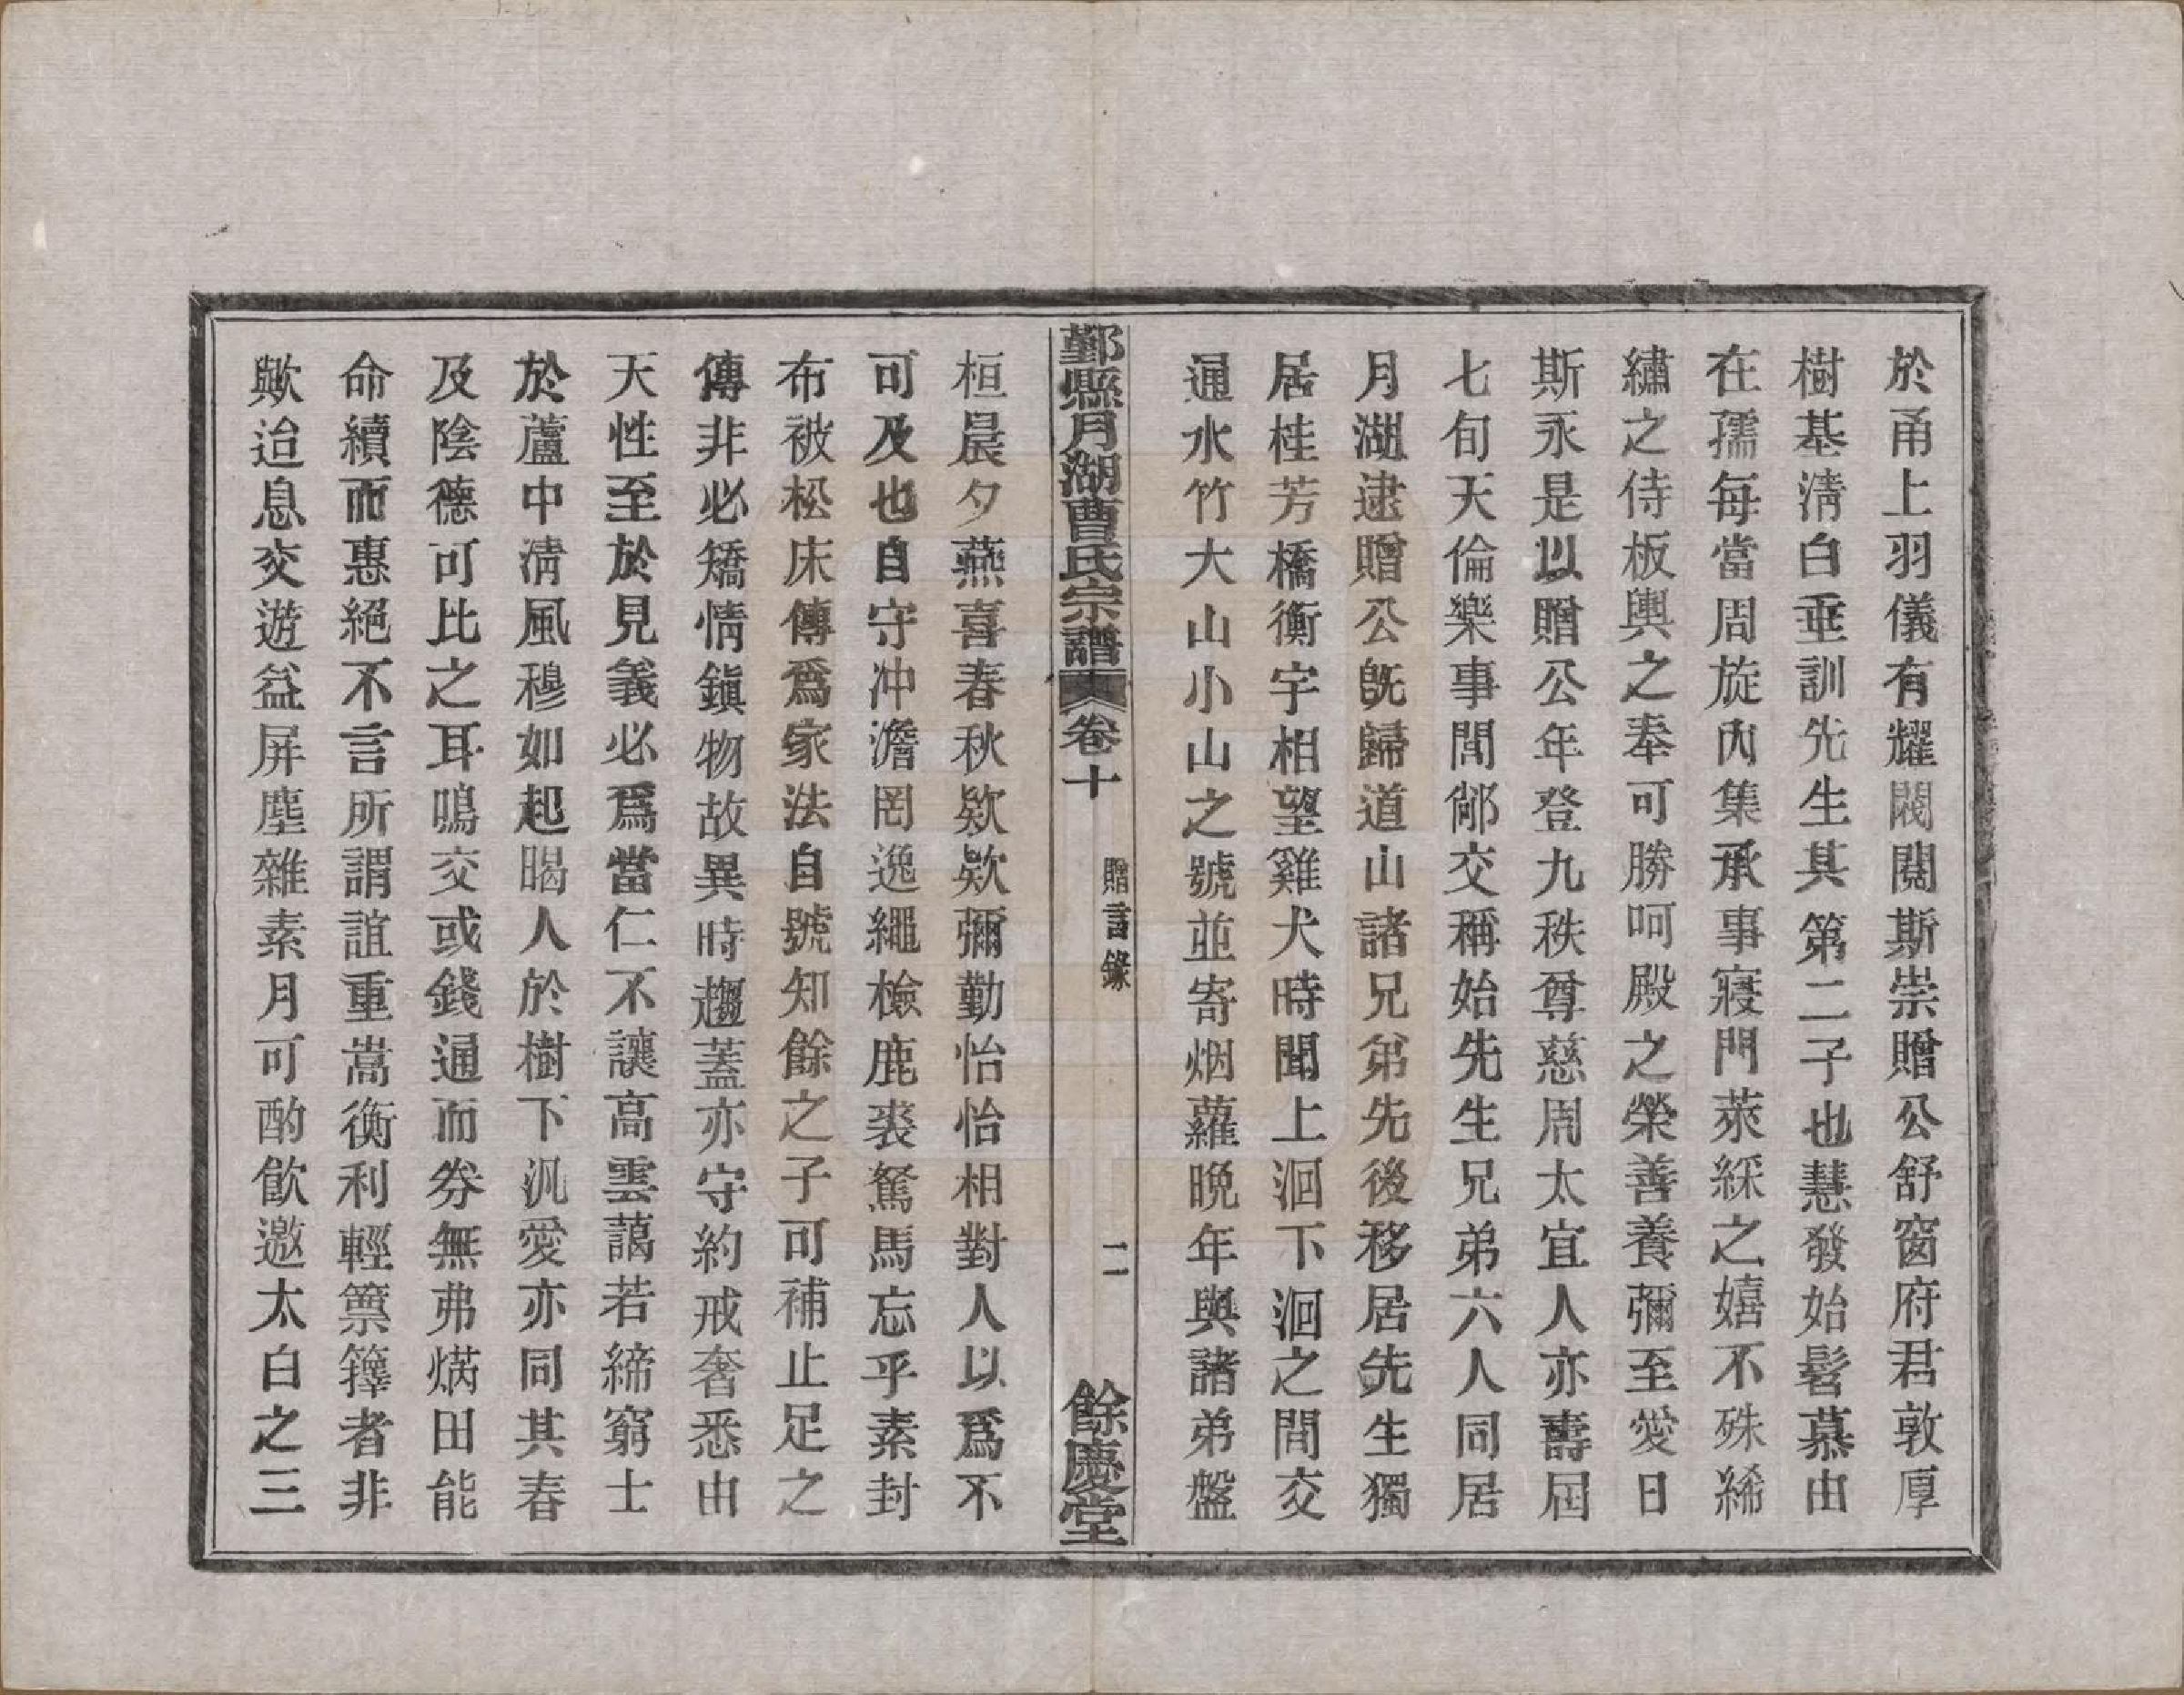 於甬上羽儀有耀閥閱斯崇贈公舒窗府君敦厚
樹基淸白垂訓先生其第二子也慧發始髫慕由
在孺每當周旋內集承事寢門萊綵之嬉不殊絺
繡之侍板輿之奉可勝呵殿之榮善養彌至愛日
斯永是以贈公年登九秩尊慈周太宜人亦壽屆
七旬天倫樂事閭鄰交稱始先生兄弟六人同居
月湖逮贈公旣歸道山諸兄弟先後移居先生獨
居桂芳橋衡宇相望雞犬時聞上洄下洄之間交
通水竹大山小山之號並寄烟蘿晚年與諸弟盤
鄞縣月湖曹氏宗譜 卷十 贈言錄 二 餘慶堂
桓晨夕燕喜春秋欵欵彌勤怡怡相對人以爲不
可及也自守冲澹罔逸繩檢鹿裘駑馬忘乎素封
布被松床傳爲家法自號知餘之子可補止足之
傳非必矯情鎭物故異時趨蓋亦守約戒奢悉由
天性至於見義必爲當仁不讓高雲藹若締窮士
於蘆中淸風穆如起暍人於樹下汎愛亦同其春
及陰德可比之耳鳴交或錢通而券無弗焫田能
命續而惠絕不言所謂誼重嵩衡利輕篻籜者非
歟迨息交遊益屏塵雜素月可酌飮邀太白之三